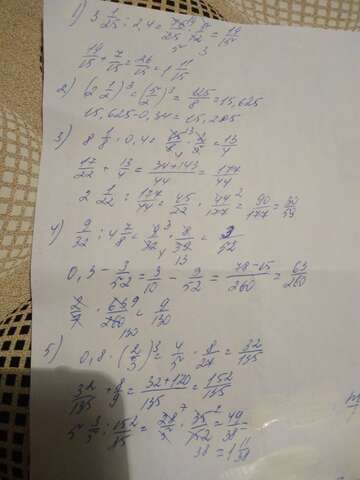 1) 3 1/25 : 2,4 = 75/25 · 5/12 = 19/15
19/15 + 7/15 = 26/15 = 1 11/15
2) (2 1/2)^3 = (5/2)^3 = 125/8 = 15,625
15,625 - 0,34 = 15,285
3) 8 1/8 · 0,4 = 65/8 · 2/5 = 13/4
17/22 + 13/4 = 34+143/44 = 177/44
2 1/22 : 177/44 = 45/22 · 44/177 = 90/177 = 30/59
4) 9/32 : 4 7/8 = 9/32 · 8/39 = 3/52
0,3 - 3/52 = 3/10 - 3/52 = 78-15/260 = 63/260
63/260 = 9/130
5) 0,8 · (2/3)^3 = 4/5 · 8/27 = 32/135
32/135 + 8/9 = 32+120/135 = 152/135
5 3/5 : 152/135 = 28/5 · 35/152 = 49/38 =
38 = 1 11/38